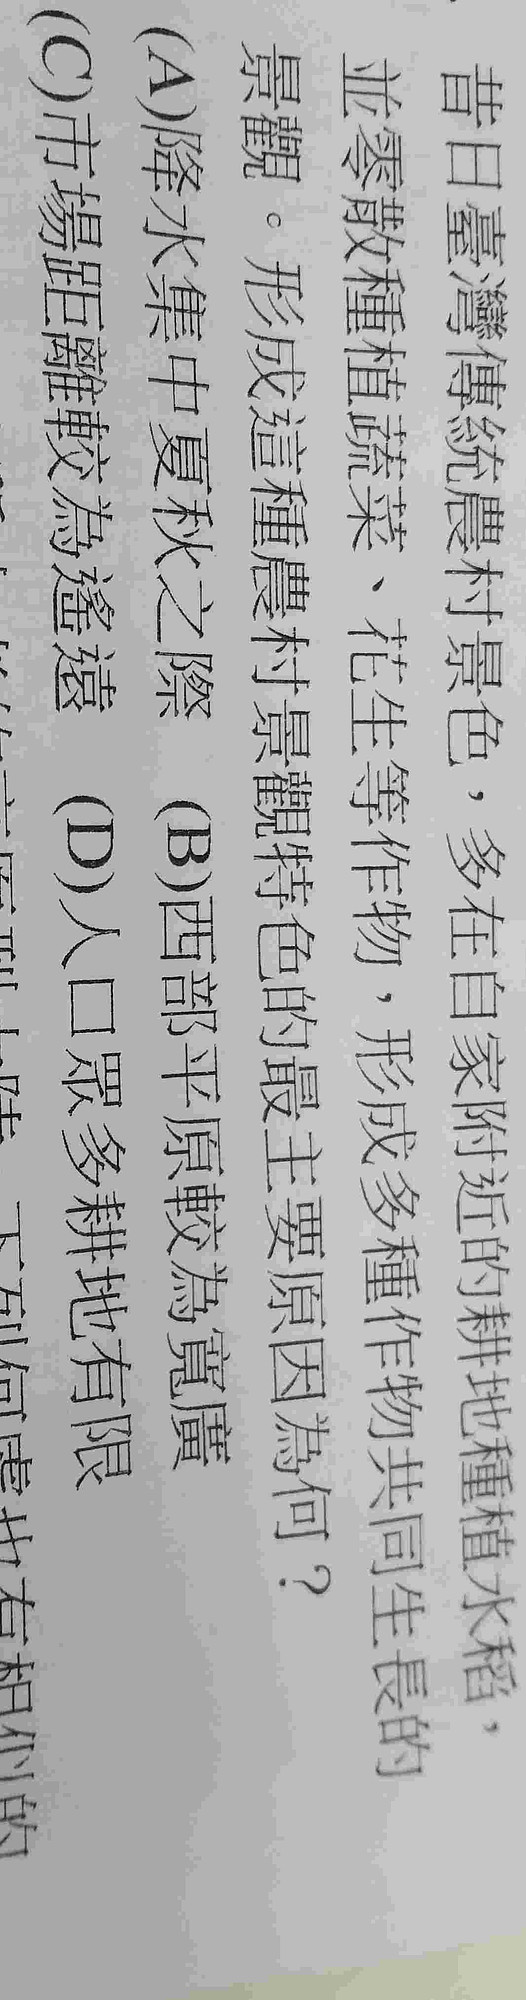 昔日臺灣傳統農村景色，多在自家附近的耕地種植水稻，
並零散種植蔬菜、花生等作物，形成多種作物共同生長的
景觀。形成這種農村景觀特色的最主要原因為何？
(A)降水集中夏秋之際 (B)西部平原較為寬廣
(C)市場距離較為遙遠 (D)人口眾多耕地有限
下列何處也有相似的